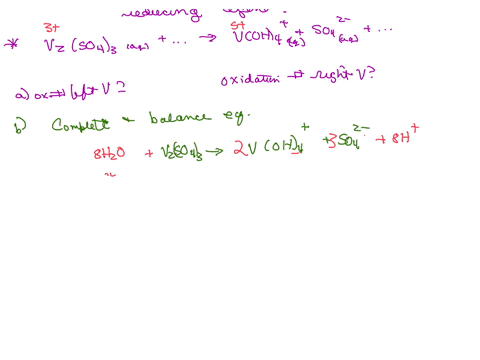 reducing agent?
3+ 5+
* V2(SO4)3 (aq) + ... → V(OH)4+ (aq) + SO4 2- (aq) + ...
a) ox # left V? oxidation # right V?
b) Complete + balance eq.
8H2O + V2(SO4)3 → 2V(OH)4+ + 3SO4 2- + 8H+